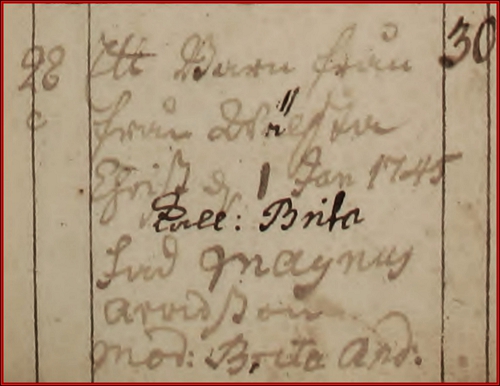 28 Ett Barn från 30
från Wä
Christ d. 1 Jan 1745
Kall: Brita
Fad Magnus
Arvidsson
Mod: Brita And.